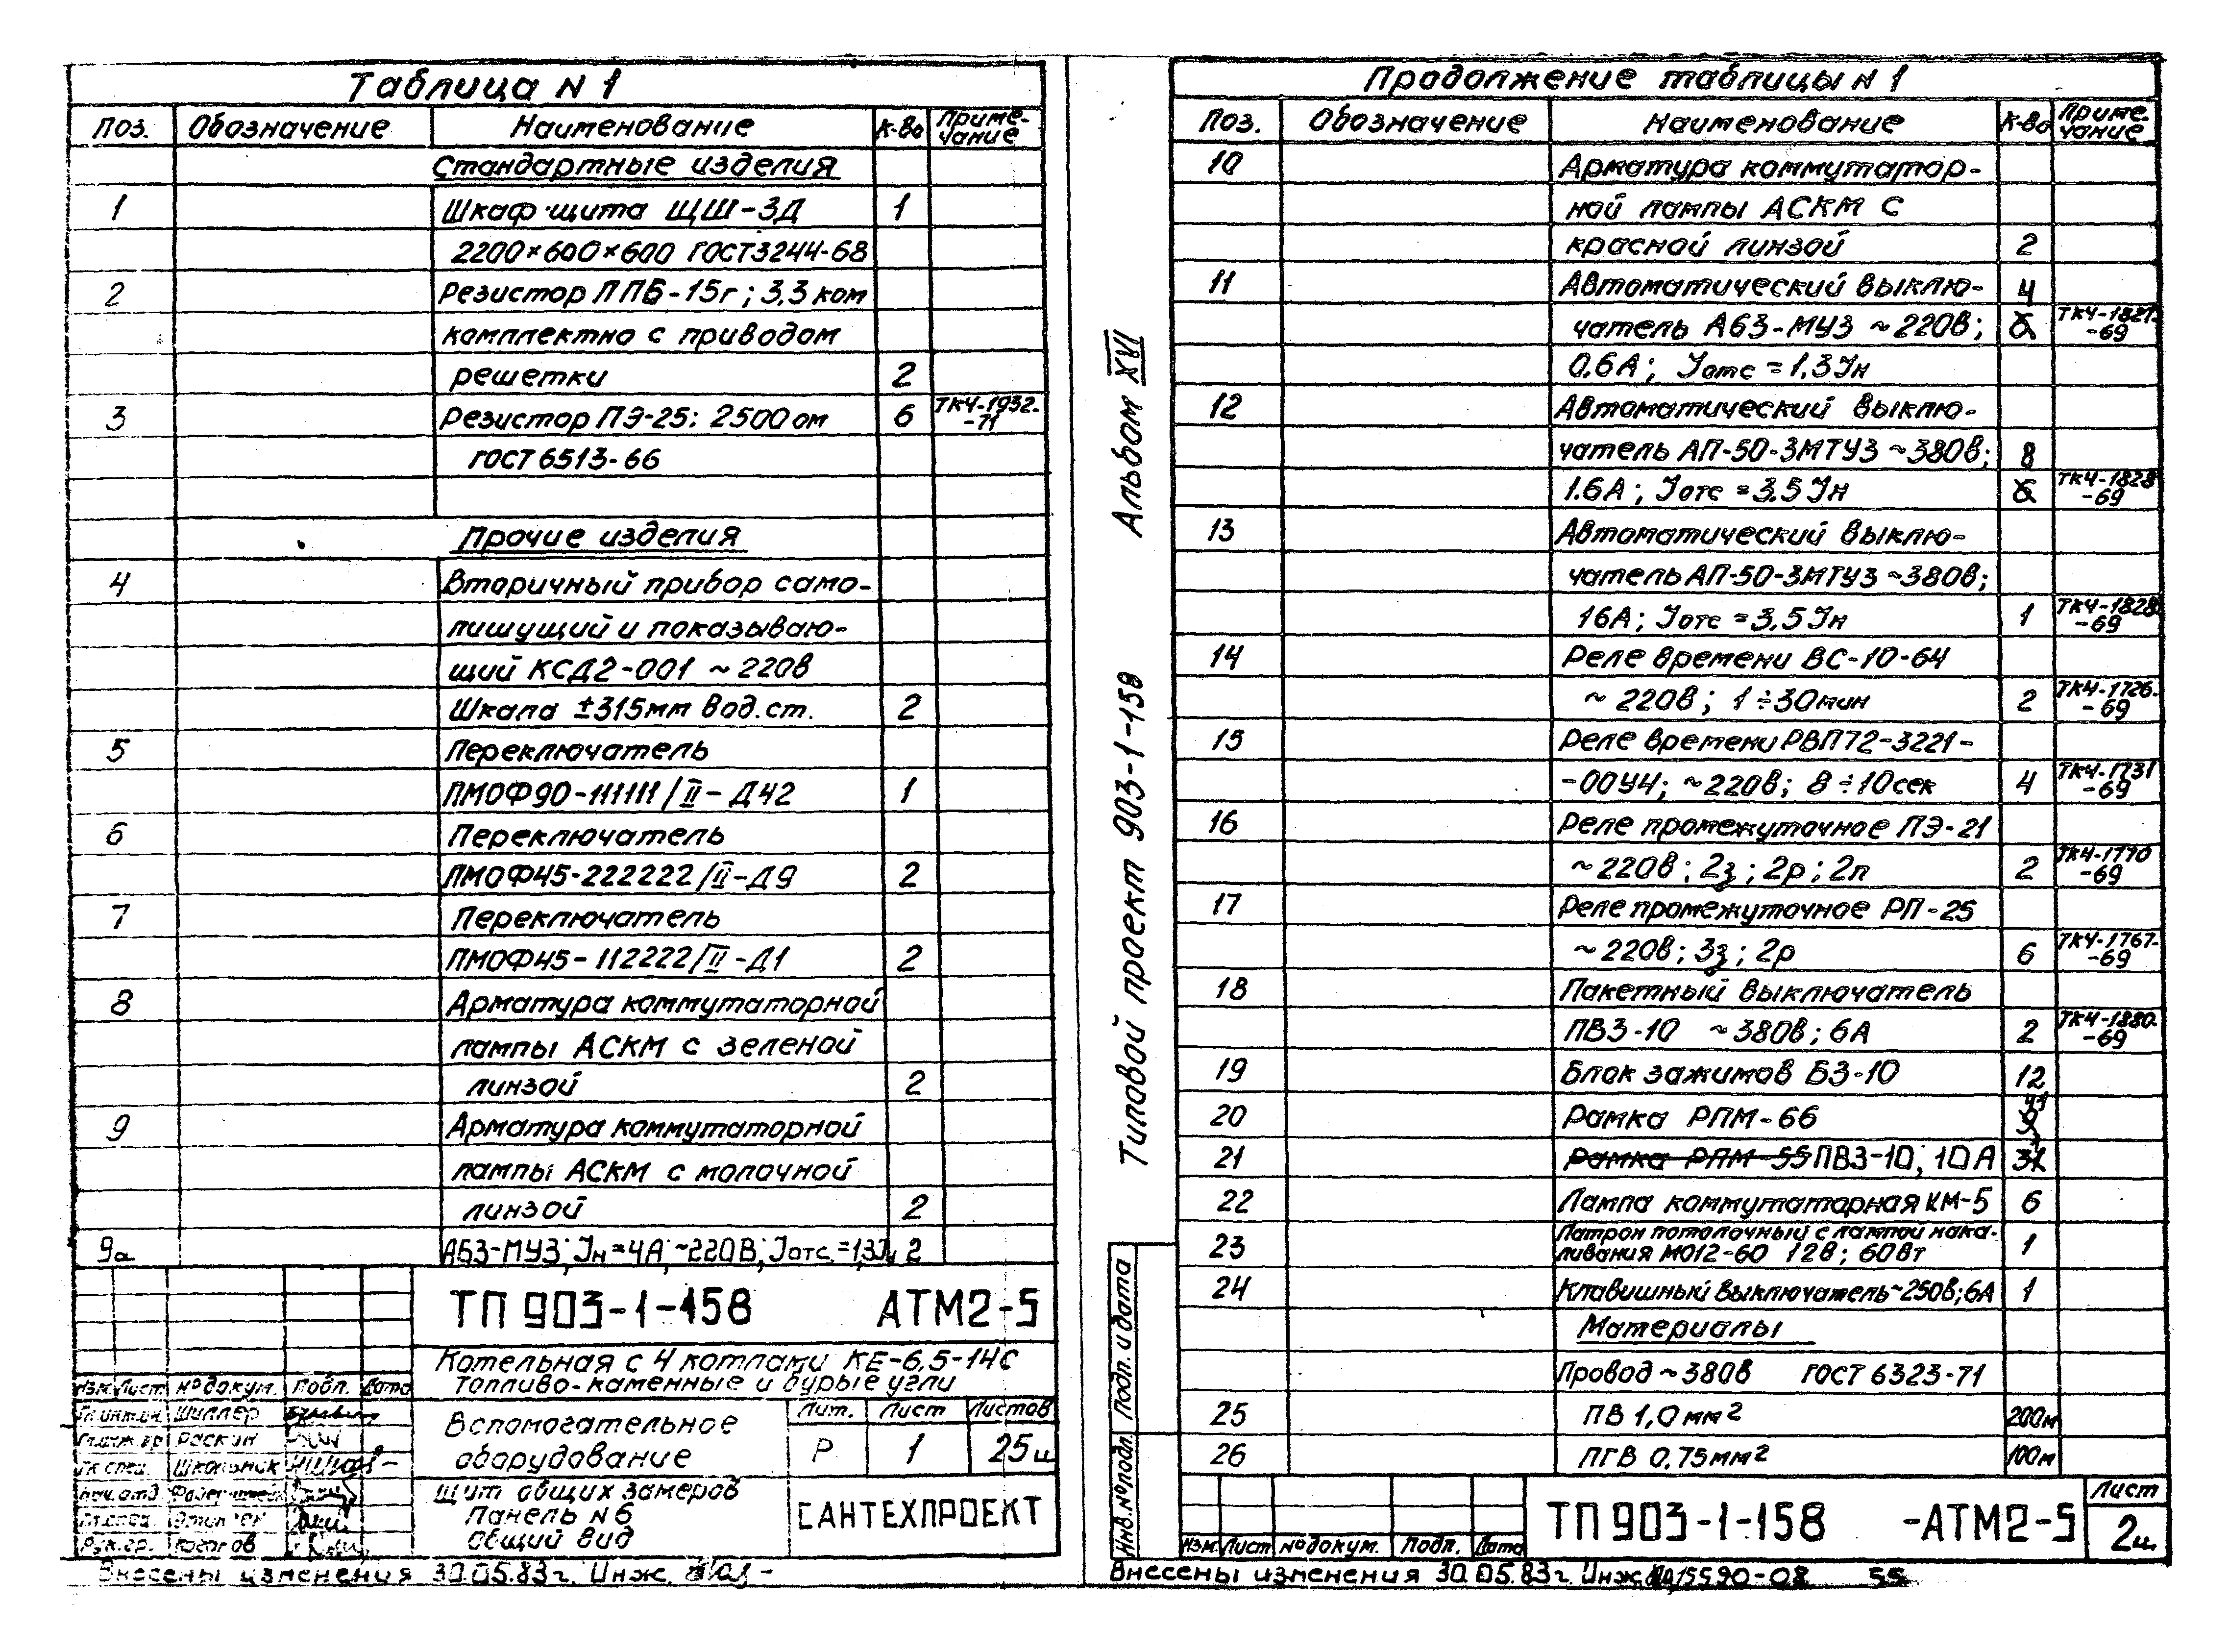 Таблица N 1
Поз. Обозначение Наименование К-во Приме-чание
Стандартные изделия
1 Шкаф щита ЩШ-ЗД 1
2200×600×600 ГОСТ3244-68
2 Резистор ППБ-15г; 3,3 ком
комплектно с приводом
решетки 2
3 Резистор ПЭ-25: 2500 ом 6 ТКЧ-1932.-71
ГОСТ 6513-66
Прочие изделия
4 Вторичный прибор само-
пишущий и показываю-
щий КСД2-001 ~ 220в
Шкала ±315мм вод.ст. 2
5 Переключатель
ПМОФ90-111111/II-Д42 1
6 Переключатель
ПМОФ45-222222/II-Д9 2
7 Переключатель
ПМОФ45-112222/II-Д1 2
8 Арматура коммутаторной
лампы АСКМ с зеленой
линзой 2
9 Арматура коммутаторной
лампы АСКМ с молочной
линзой 2
9а АБЗ-МУЗ; Iн=4А; ~220В; Iотс.=1,3Iн 2
ТП 903-1-158 АТМ2-5
Котельная с 4 котлами КЕ-6,5-14С
топливо-каменные и бурые угли
Изм. Лист № докум. Подп. Дата
Шиллер
Раскин
Школьник
Вспомогательное
оборудование
Лит. Лист Листов
Р 1 25и
Щит общих замеров
Панель N6
Общий вид
САНТЕХПРОЕКТ
Внесены изменения 30.05.83г. Инж.
Продолжение таблицы N 1
Поз. Обозначение Наименование К-во Приме-чание
10 Арматура коммутатор-
ной лампы АСКМ с
красной линзой 2
11 Автоматический выклю- 4
чатель А63-МУЗ ~220в; 6 ТКЧ-1827.-69
0,6А; Iотс =1,3Iн
12 Автоматический выклю-
чатель АП-50-3МТУЗ ~380в; 8
1.6А; Iотс =3.5Iн 6 ТКЧ-1828-69
13 Автоматический выклю-
чатель АП-50-3МТУЗ ~380в;
16А; Iотс =3,5Iн 1 ТКЧ-1828.-69
14 Реле времени ВС-10-64
~ 220в; 1÷30мин 2 ТКЧ-1726.-69
15 Реле времени РВП72-3221-
-00У4; ~220в; 8÷10сек 4 ТКЧ-1731-69
16 Реле промежуточное ПЭ-21
~220в; 2з; 2р; 2п 2 ТКЧ-1770-69
17 Реле промежуточное РП-25
~220в; 3з; 2р 6 ТКЧ-1767.-69
18 Пакетный выключатель
ПВЗ-10 ~380в; 6А 2 ТКЧ-1880.-69
19 Блок зажимов БЗ-10 12
20 Рамка РПМ-66
21 Рамка РПМ-55 ПВЗ-10; 10А
22 Лампа коммутаторная КМ-5 6
23 Патрон потолочный с лампой нака-
ливания МО12-60 12в; 60Вт 1
24 Клавишный выключатель ~250в; 6А 1
Материалы
Провод ~380в ГОСТ 6323-71
25 ПВ 1,0мм² 200м
26 ПГВ 0,75мм² 100м
Изм. Лист № докум. Подп. Дата
ТП 903-1-158 -АТМ2-5
Лист
2и
Внесены изменения 30.05.83г. Инж. 15590-08 55
Типовой проект 903-1-158 Альбом XVI
Инв.№ подл. Подп. и дата